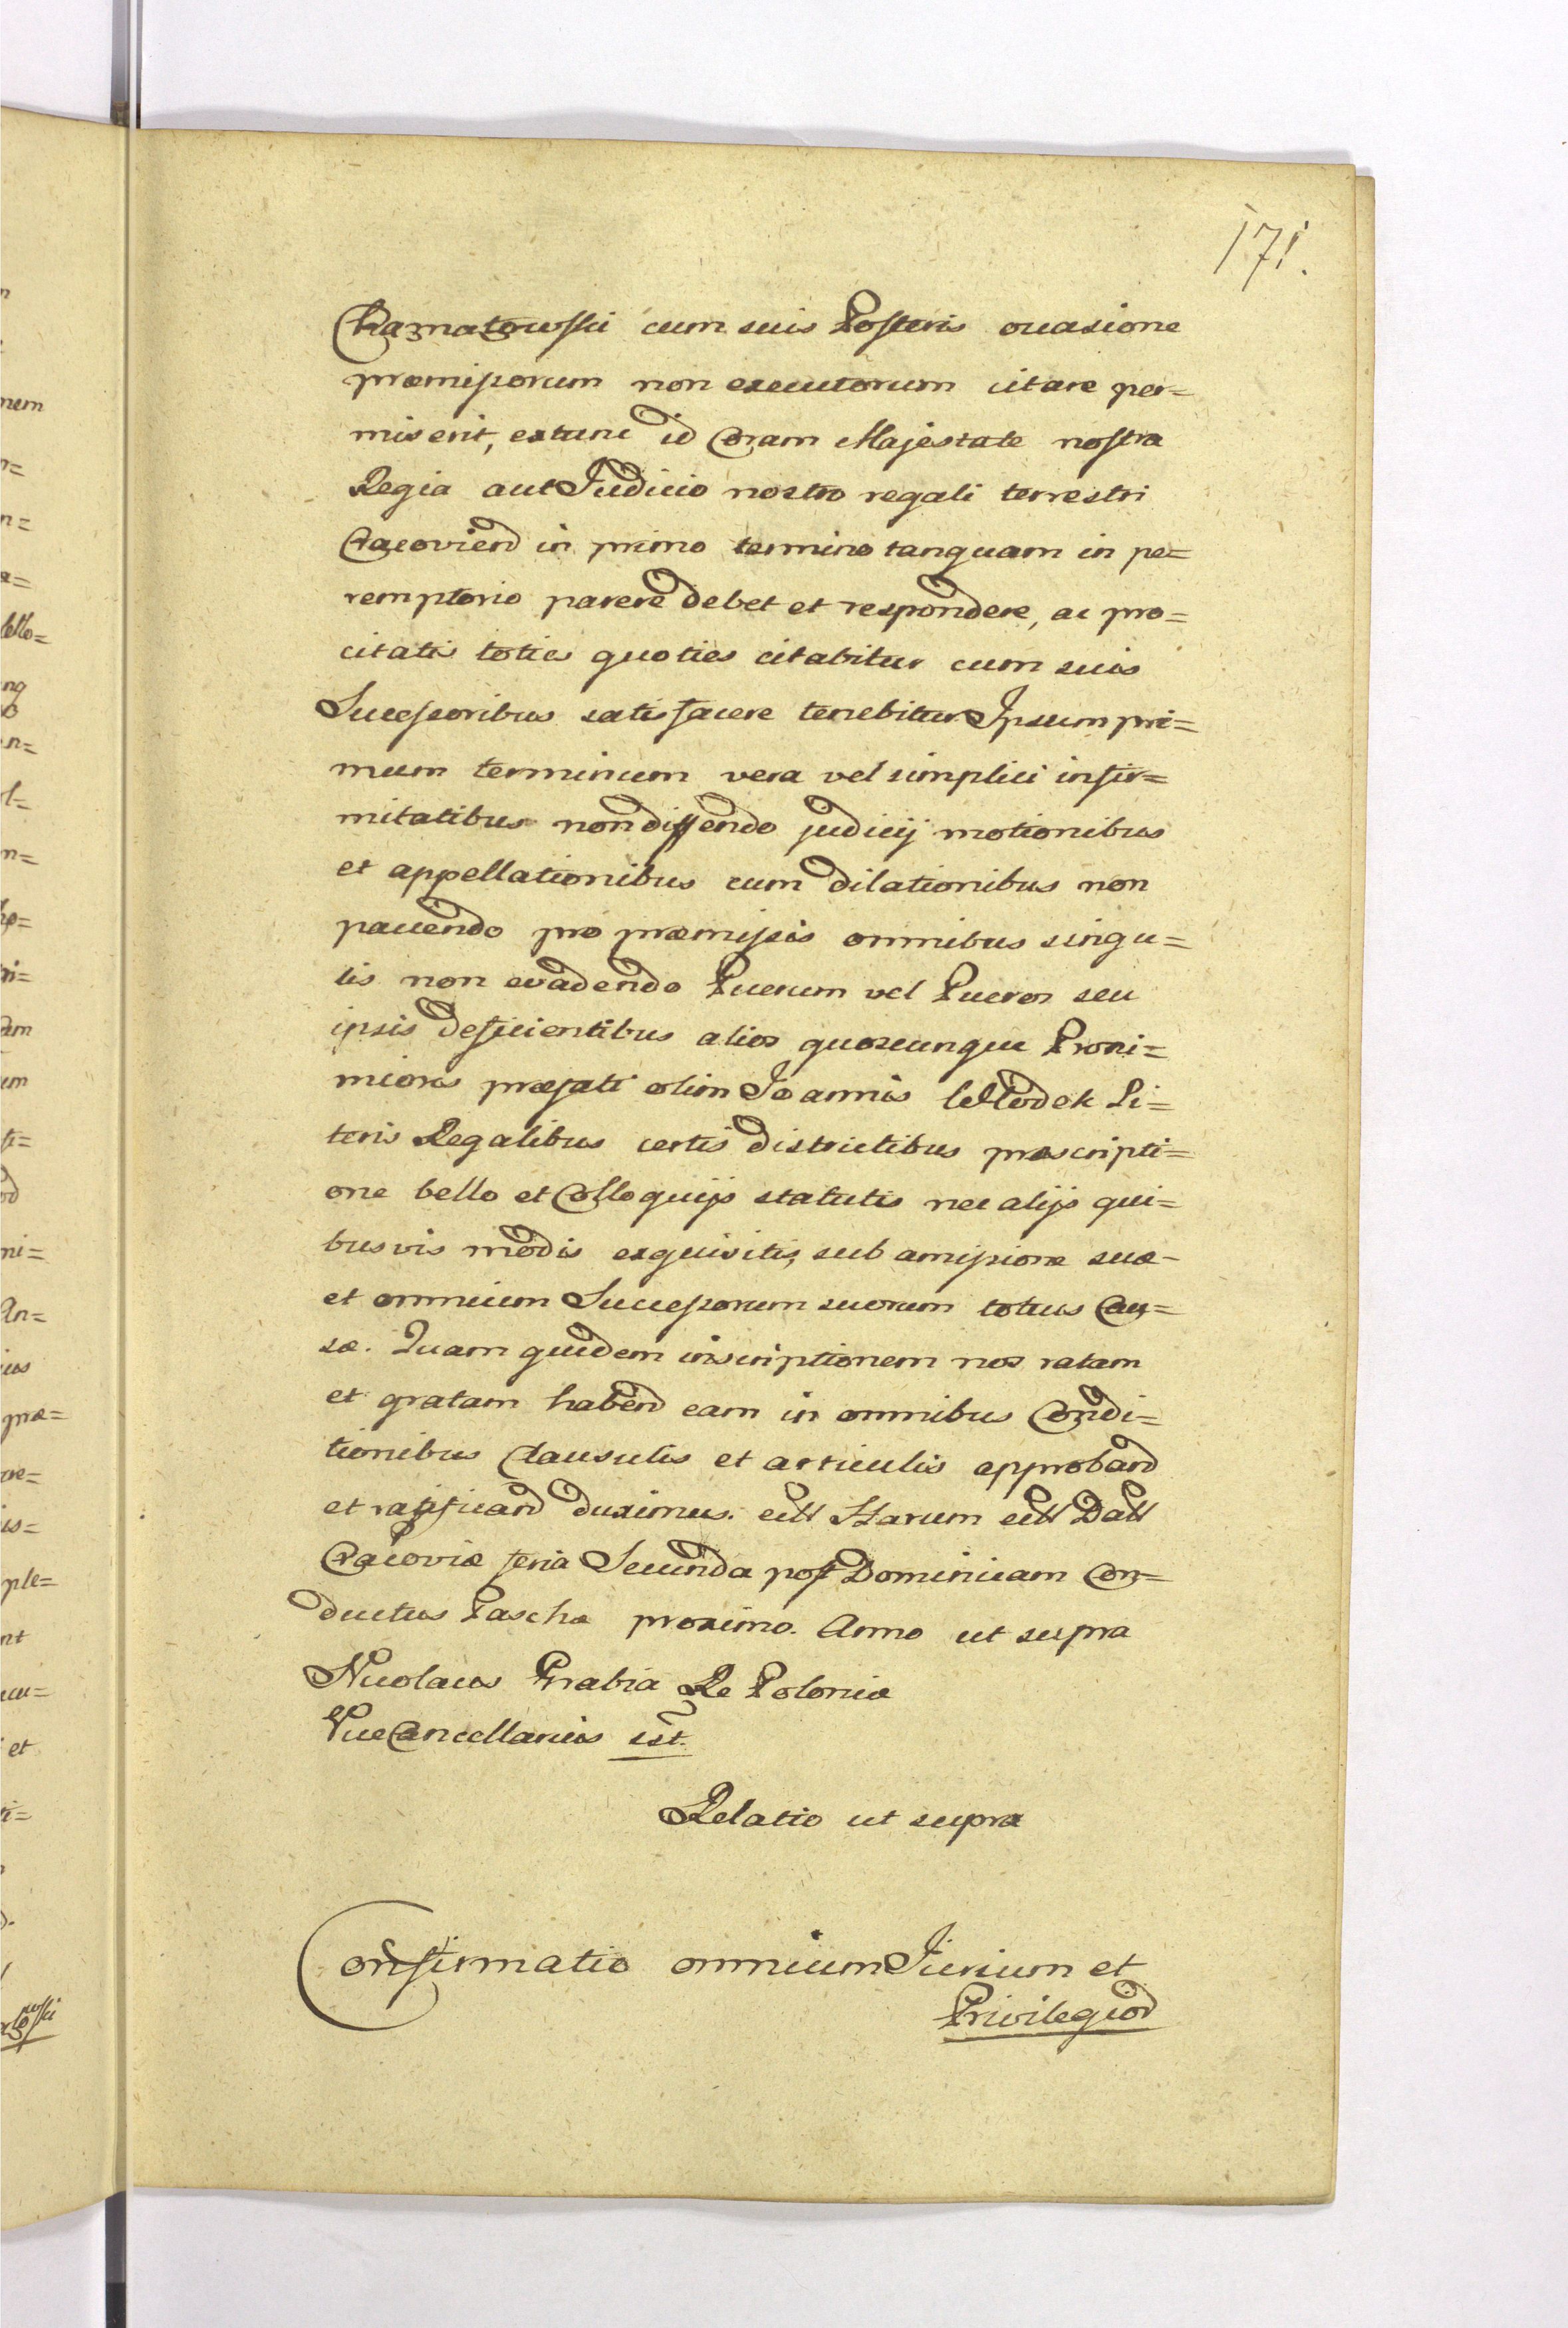 171.
Charmatowski cum suis Posteris occasione
præmissorum non executorum citare per=
miserit, extunc id Coram Majestate nostra
Regia aut Judicio nostro regali terrestri
Cracoviend in primo termino tanquam in pe=
remptorio parere debet et respondere, ac pro=
citatis toties quoties citabitur cum suis
Successoribus satisfacere tenebitur Ipsum pri=
mum terminum vera vel simplici infir=
mitatibus non differendo judicij motionibus
et appellationibus cum dilationibus non
pavendo pro præmissis omnibus singu=
lis non evadendo Puerum vel Pueros seu
ipsis deficientibus alios quoscunque Proxi=
miores præfati olim Joannis Wlodek Li=
teris Regalibus certis districtibus præscripti=
one bello et Colloquijs statutis nec alijs qui=
busvis modis exquisitis, sub amissione suæ
et omnium Successorum suorum totius Cau=
sæ. Quam quidem inscriptionem nos ratam
et gratam habend eam in omnibus Condi=
tionibus Clausulis et articulis approband
et ratificand duximus. ett Harum ett Datt
Cracoviæ feria Secunda post Dominicam Con=
ductus Paschæ proximo. Anno ut supra
Nicolaus Prabia Re Poloniæ
ViceCancellarius sst.
Relatio ut supra
Confirmatio omnium Jurium et
Privilegiod